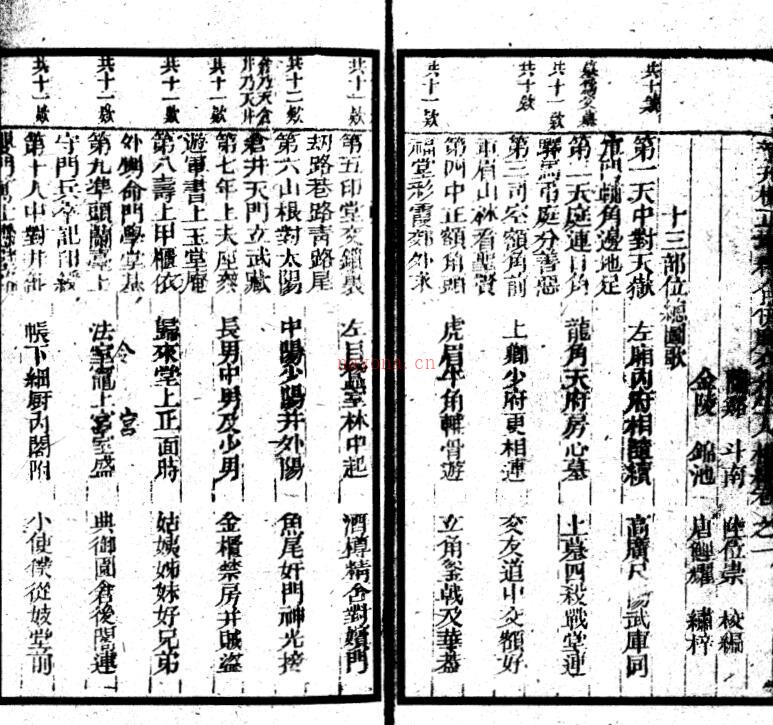 蘭谿 斗南 陸位崇 校編
金陵 錦池 唐鯉耀 繡梓
十三部位總圖歌
第一天中對天獄 左廂內府相隨續 高廣尺陽武庫同
共十款
軍門輔角邊地足
第二天庭連日角 龍角天府房心墓 上墓四殺戰堂連
共十一款
驛馬弔庭分善惡
第三司空額角前 上卿少府更相連 交友道中交額好
共十款
車眉山林看聖賢
第四中正額角頭 虎眉牛角輔骨遊 玄角釜戟及華蓋
共十一款
福堂彩霞郊外求
第五印堂交鎖裏 左目蠶室林中起 酒樽精舍對嬪門
共十一款
劫路巷路青路尾
第六山根對太陽 中陽少陽并外陽 魚尾奸門神光接
共十二款
倉井天門立武藏
倉乃天倉
井乃天井
第七年上夫座參 長男中男及少男 金櫃禁房并賊盜
共十一款
遊軍書上玉堂庵
第八壽上甲櫃依 歸來堂上正面時 姑姨姊妹好兄弟
共十一款
外甥命門學堂基
第九準頭蘭臺上 法令竈上宮室盛 典御園倉後閣連
共十一款
守門兵卒記印綬
第十人中對井部 帳下細廚內閣附 小使僕從妓堂前
共十一款